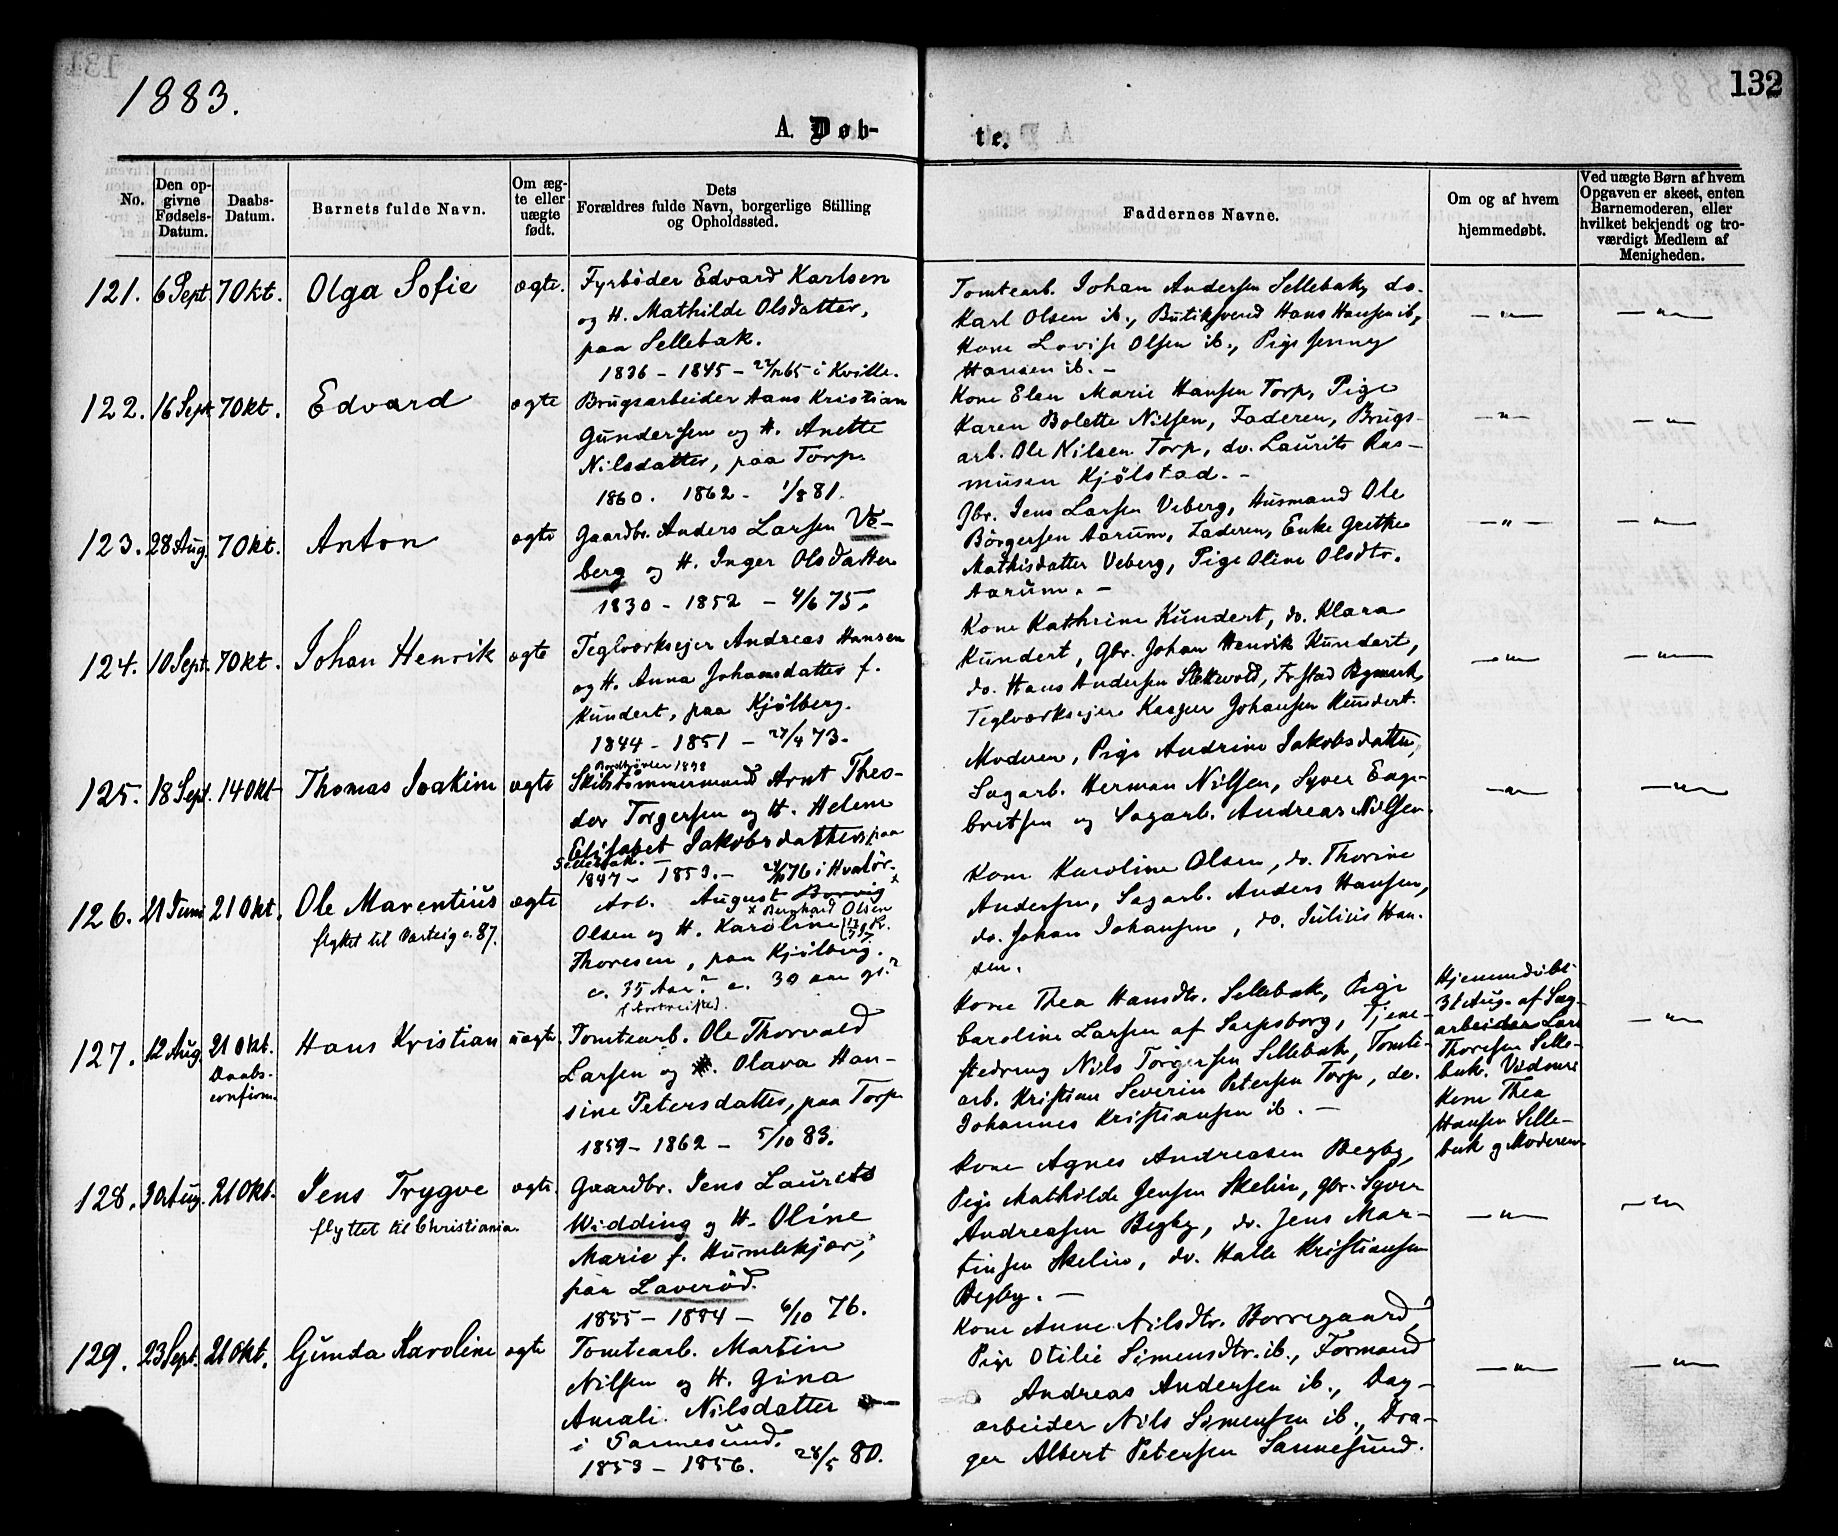 1883.
132
A. Døb-
te.
No.
Den op-
givne
Fødsels-
Datum.
Daabs-
Datum.
Barnets fulde Navn.
Om æg-
te eller
uægte
født.
Dets
Forældres fulde Navn, borgerlige Stilling
og Opholdssted.
Faddernes Navne.
Om og af hvem
hjemmedøbt.
Ved uægte Børn af hvem
Opgaven er skeet, enten
Barnemoderen, eller
hvilket bekjendt og tro-
værdigt Medlem af
Menigheden.
121. 6 Sept 7 Okt. Olga Sofie ægte.
Fyrbøder Edvard Karlsen
og H. Mathilde Olsdatter,
paa Sellebak.
1836 - 1845 - 65 i Kville.
Tomtearb. Johan Andersen Sellebak, do.
Karl Olsen ib., Butiksvend Hans Hansen ib,
Kone Lovise Olsen ib., Pige Jenny
Hansen ib. -
-"- -"-
122. 16 Sept. 7 Okt. Edvard ægte
Brugsarbeider Hans Kristian
Gundersen og H. Anette
Nilsdatter, paa Torp.
1860. 1862 - 1/8 81.
Kone Elen Marie Hansen Torp, Pige
Karen Bolette Nilsen, Faderen, Brugs-
arb. Ole Nilsen Torp, do. Laurits Ras-
musen Kjølstad. -
-"- -"-
123. 28 Aug. 7 Okt. Anton ægte
Gaardbr. Anders Larsen Ve-
berg og H. Inger Olsdatter
1830 - 1852 - 4/6 75.
Gbr. Jens Larsen Veberg, Husmand Ole
Børgersen Aarum, Faderen, Enke Grethe
Mathisdatter Veberg, Pige Oline Olsdtr.
Aarum. -
-"- -"-
124. 10 Sept. 7 Okt. Johan Henrik ægte
Teglværksejer Andreas Hansen
og H. Anna Johansdatter f.
Kundert, paa Kjølberg.
1844 - 1851 - 27/4 73.
Kone Kathrine Kundert, do. Klara
Kundert, Gbr. Johan Henrik Kundert,
do. Hans Andersen Slettevold, Fr.stad Bymark,
Teglværksejer Kasper Johansen Kundert.
-"- -"-
125. 18 Sept. 14 Okt Thomas Joakim ægte
1898
Skibstømmermand Arnt Theo-
dor Torgersen og H. Helene
Elisabet Jakobsdatter, paa
Sellebak. -
1847 - 1853. - 76 i Hvaler.
Moderen, Pige Andrine Jakobsdatter,
Sagarb. Herman Nilsen, Syver Enge-
britsen og Sagarb. Andreas Nilsen.
-"- -"-
126. 21 Juni 21 Okt. Ole Marentius ægte
flyttet til Varteig c. 87.
Arb. August Borvig x
x Bernhard Olsen
Olsen og H. Karoline
Thoresen, paa Kjølberg.
c. 35 Aar? c. 30 aar gl.?
(bortreiste).
Kone Karoline Olsen, do. Thorine
Andersen, Sagarb. Anders Hansen,
do. Johan Johansen, do. Julius Han-
sen.
127. 12 Aug. 21 Okt. Hans Kristian uægte
Daabs-
confirm.
Tomtearb. Ole Thorvald
Larsen og Olava Han-
sine Petersdatter, paa Torp
1859 - 1862 - 5/10 83.
Kone Thea Hansdtr. Sellebak, Pige
Caroline Larsen af Sarpsborg, Tjene-
stedreng Nils Torgersen Sellebak, Tomte-
arb. Kristian Severin Petersen Torp, do.
Johannes Kristiansen ib. -
Hjemmedøbt
31 Aug. af Sag-
arbeider Lars
Thoresen Selle-
bak. Vidner:
Kone Thea
Hansen Selle-
bak og Moderen.
-"-
128. 30 Aug. 21 Okt. Jens Trygve ægte
flyttet til Christiania.
Gaardbr. Jens Laurits
Widding og H. Oline
Marie f. Humlekjær,
paa Laverød.
1855 - 1854 - 6/10 76.
Kone Agnes Andreasen Begby,
Pige Mathilde Jensen Skelin, gbr. Syver
Andreasen Begby, do. Jens Mar-
tinsen Skelin, do. Halle Kristiansen
Begby. -
-"- -"-
129. 23 Sept. 21 Okt. Gunda Karoline ægte
Tomtearb. Martin
Nilsen og H. Gina
Amali. Nilsdatter
i Sannesund.
1853 - 1856. 28/5 80.
Kone Anne Nilsdtr. Borregaard,
Pige Otilie Simensdtr. ib., Formand
Andreas Andersen ib., Dag-
arbeider Nils Simensen ib., Dra-
ger Albert Petersen Sannesund.
-"- -"-